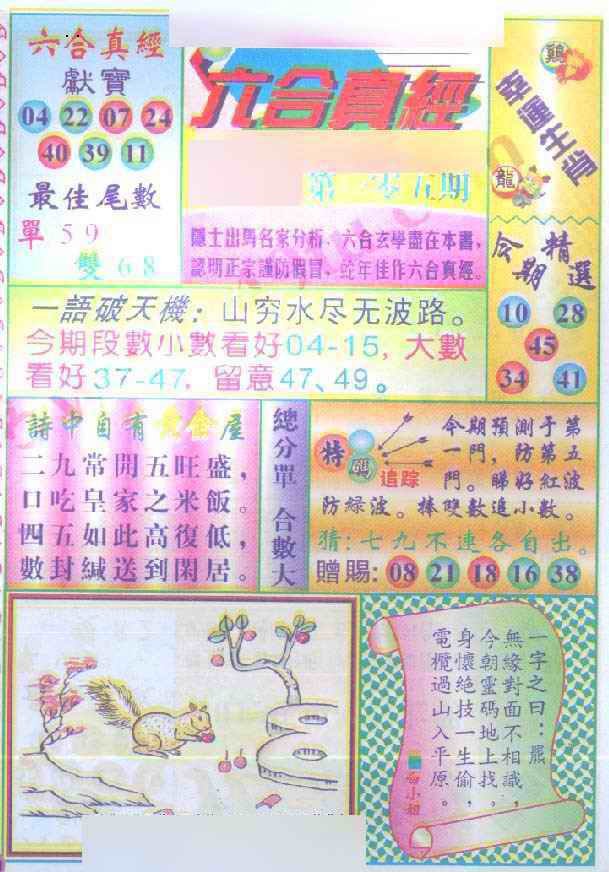 六合真經
獻寶
04 22 07 24
40 39 11
最佳尾數
單 5 9
雙 6 8
六合真經
第一零五期
隱士出馬名家分析、六合玄學盡在本書,
認明正宗謹防假冒,蛇年佳作六合真經。
鷄
幸運生肖
龍
今期精選
10 28
45
34 41
一語破天機:山穷水尽无波路。
今期段數小數看好04-15,大數
看好37-47,留意47、49。
詩中自有黄金屋
二九常開五旺盛,
口吃皇家之米飯。
四五如此高復低,
數封緘送到閑居。
總分單 合數大
特碼
追踪
今期預測于第
一門,防第五
門。睇好紅波
防綠波。捧雙數追小數。
猜:七九不連各自出。
贈賜:08 21 18 16 38
一字之曰:羆
無緣對面不相識,
今朝靈碼地上找。
身懷絕技一生偷,
電欖過山入平原。
小姐